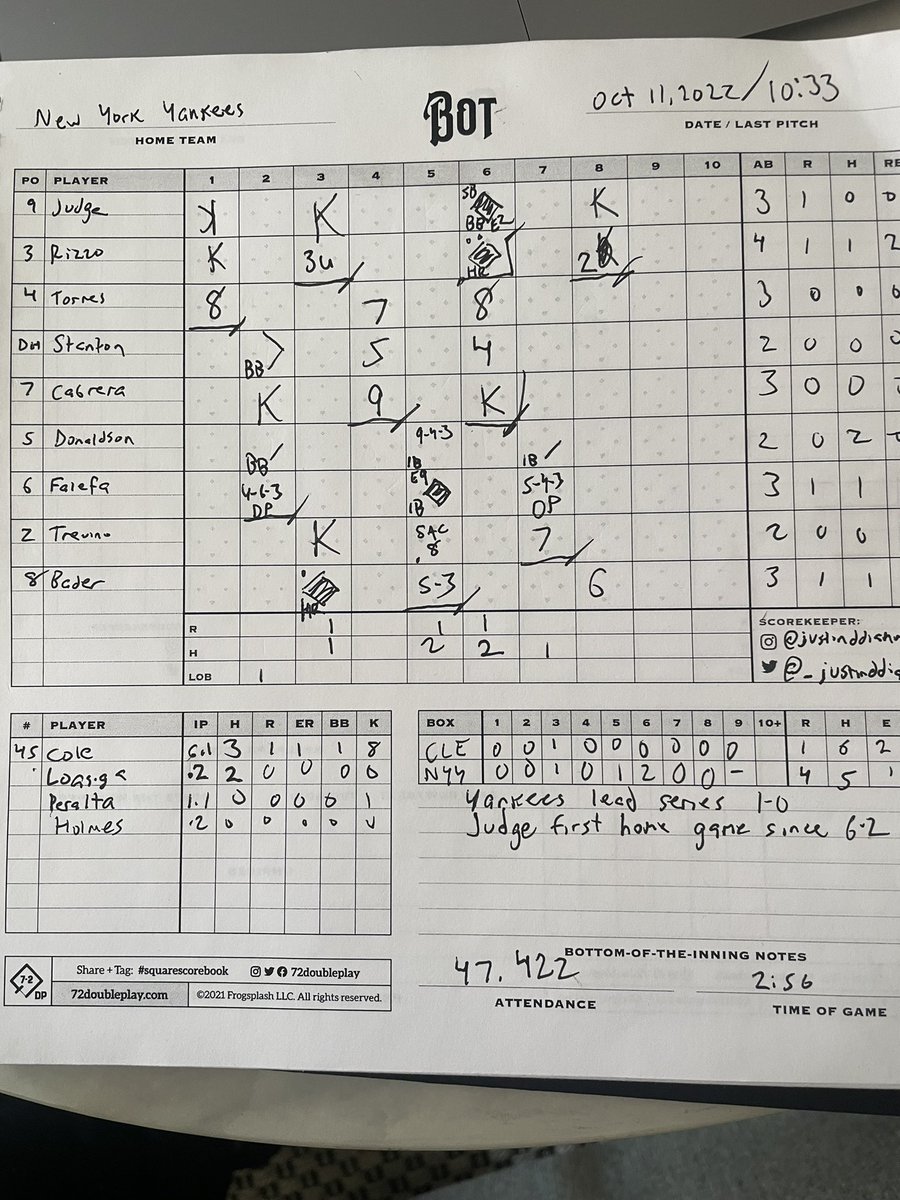 New York Yankees
HOME TEAM
BOT
Oct 11, 2022 / 10:33
DATE / LAST PITCH
PO PLAYER 1 2 3 4 5 6 7 8 9 10 AB R H
9 Judge K K SB BB E2 K 3 1 0 0
3 Rizzo K 3U HR 2 4 1 1 2
4 Torres 8 7 8 3 0 0 0
DH Stanton BB 5 4 2 0 0
7 Cabrera K 9 K 3 0 0
5 Donaldson BB 9-4-3 1B 1B 2 0 2
6 Falefa 4-6-3 DP E9 1B 5-4-3 DP 3 1 1
2 Trevino K SAC 8 7 2 0 0
8 Bader HR 5-3 6 3 1 1
R 1 1 1
H 1 2 2 1
LOB 1
SCOREKEEPER:
# PLAYER IP H R ER BB K
45 Cole 6.1 3 1 1 1 8
Loasiga .2 2 0 0 0 0
Peralta 1.1 0 0 0 0 1
Holmes .2 0 0 0 0
BOX 1 2 3 4 5 6 7 8 9 10+ R H E
CLE 0 0 1 0 0 0 0 0 0 1 6 2
NYY 0 0 1 0 1 2 0 0 - 4 5 1
Yankees lead series 1-0
Judge first home game since 62
BOTTOM-OF-THE-INNING NOTES
47,422
ATTENDANCE
2:56
TIME OF GAME
7-2 DP
Share + Tag: #squarescorebook 72doubleplay
72doubleplay.com ©2021 Frogsplash LLC. All rights reserved.